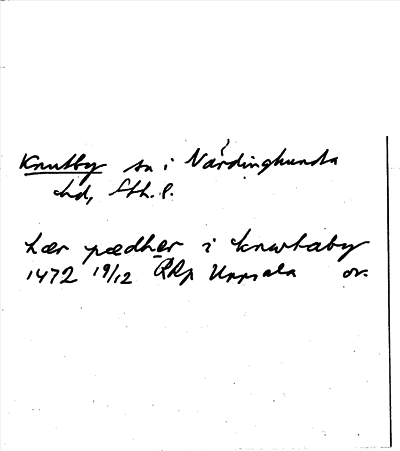 Knutby sn i Närdinghundra
hd, Sth. l.
hær pædher i knwtaby
1472 19/12 RAp Uppsala or.